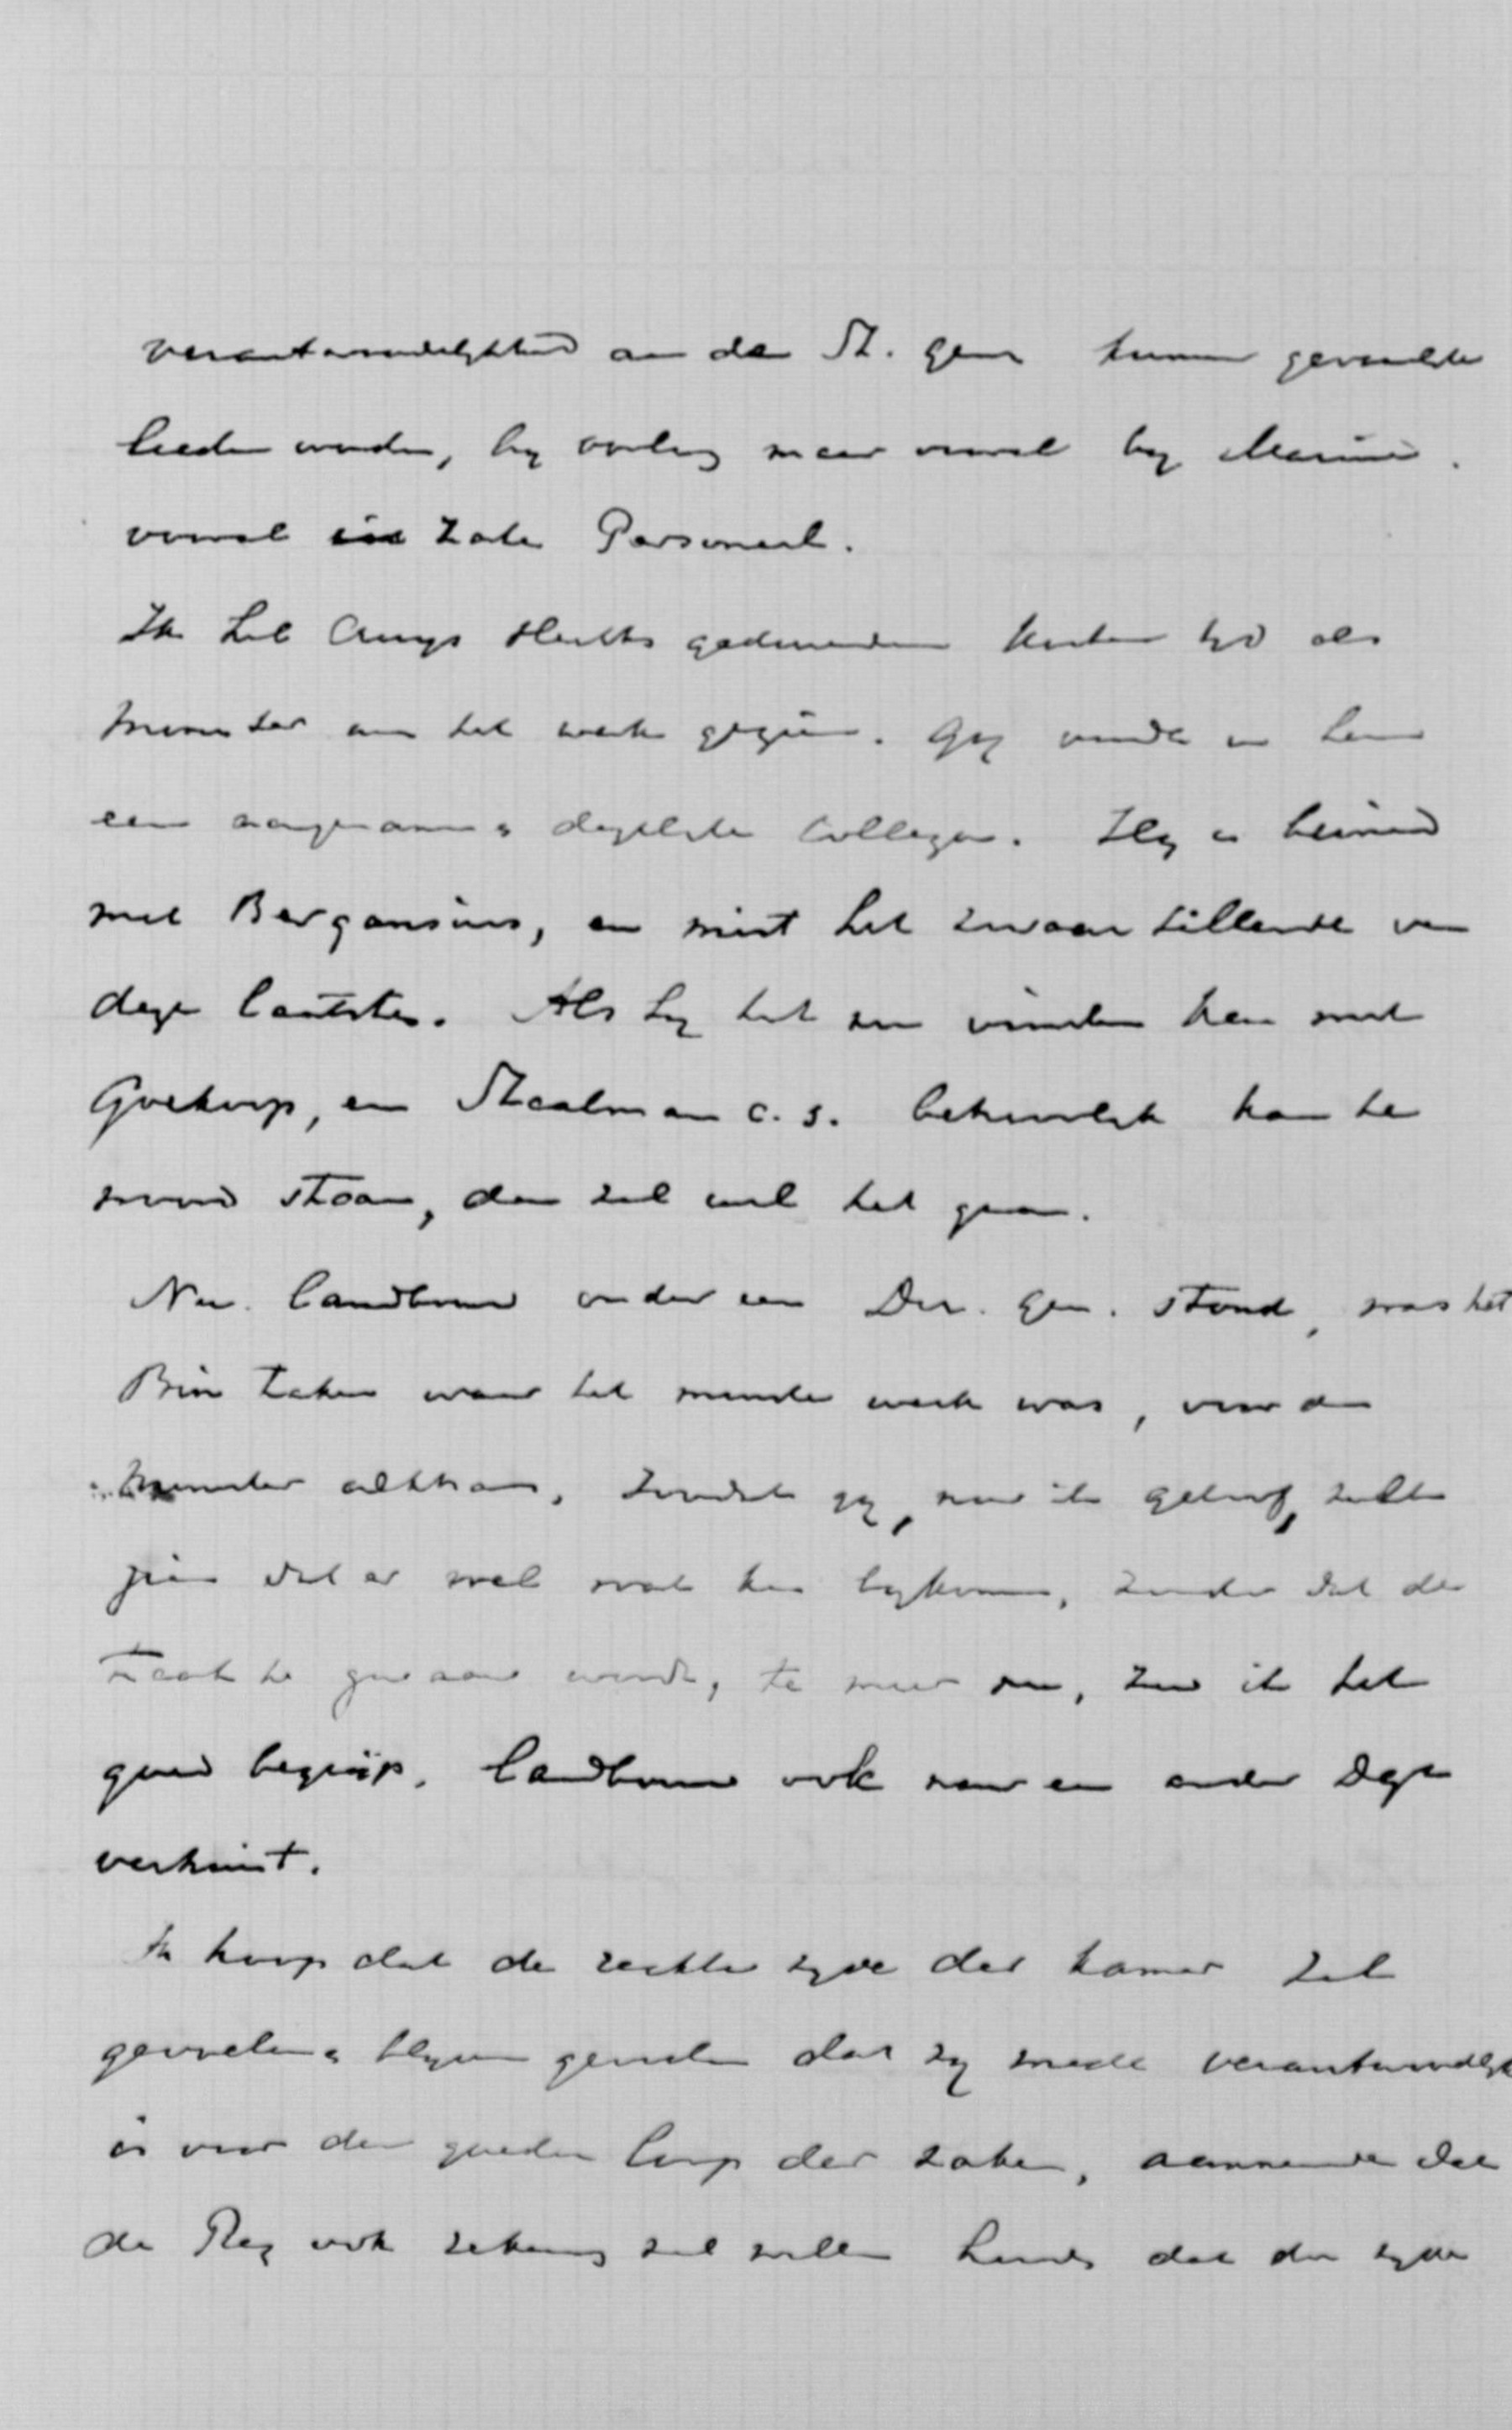 verantwoordelykheid aan de St. Gen kunnen gewaalde
leeden worden, by oorlog maar vooral by Marine.
vooral in zake Personeel.
Ik heb slechts gedurende korten tyd als
Minister aan het werk gezien. Gy vindt in hem
een aangenaam & degelyke Collega. Hy is bevriend
met Bergansius, en mist het zwaartillende van
dezen laatsten. Als hy het nu vinden kan met
en Staalman c.s. behoorlyk kan te
woord staan, dan zal wel het gaan.
Nu Landbouw onder een Dir. Gen. stond, was het
Binn Zaken waar het minste werk was, voor den
Minister althans, zoodat gy, naar ik geloof, zult
zien dat er wel wat kan bykomen, zonder dat de
taak te zwaar wordt, te meer nu, zoo ik het
goed begrijp, Landbouw ook naar een ander Dept
verhuist.
Ik hoop dat de rechter zyde der Kamer zal
gevoelen & blyven gevoelen dat zy mede verantwoordelyk
is voor den goeden loop der zaken, aannemende dat
de Reg ook rekening zal willen houden dat die zyde